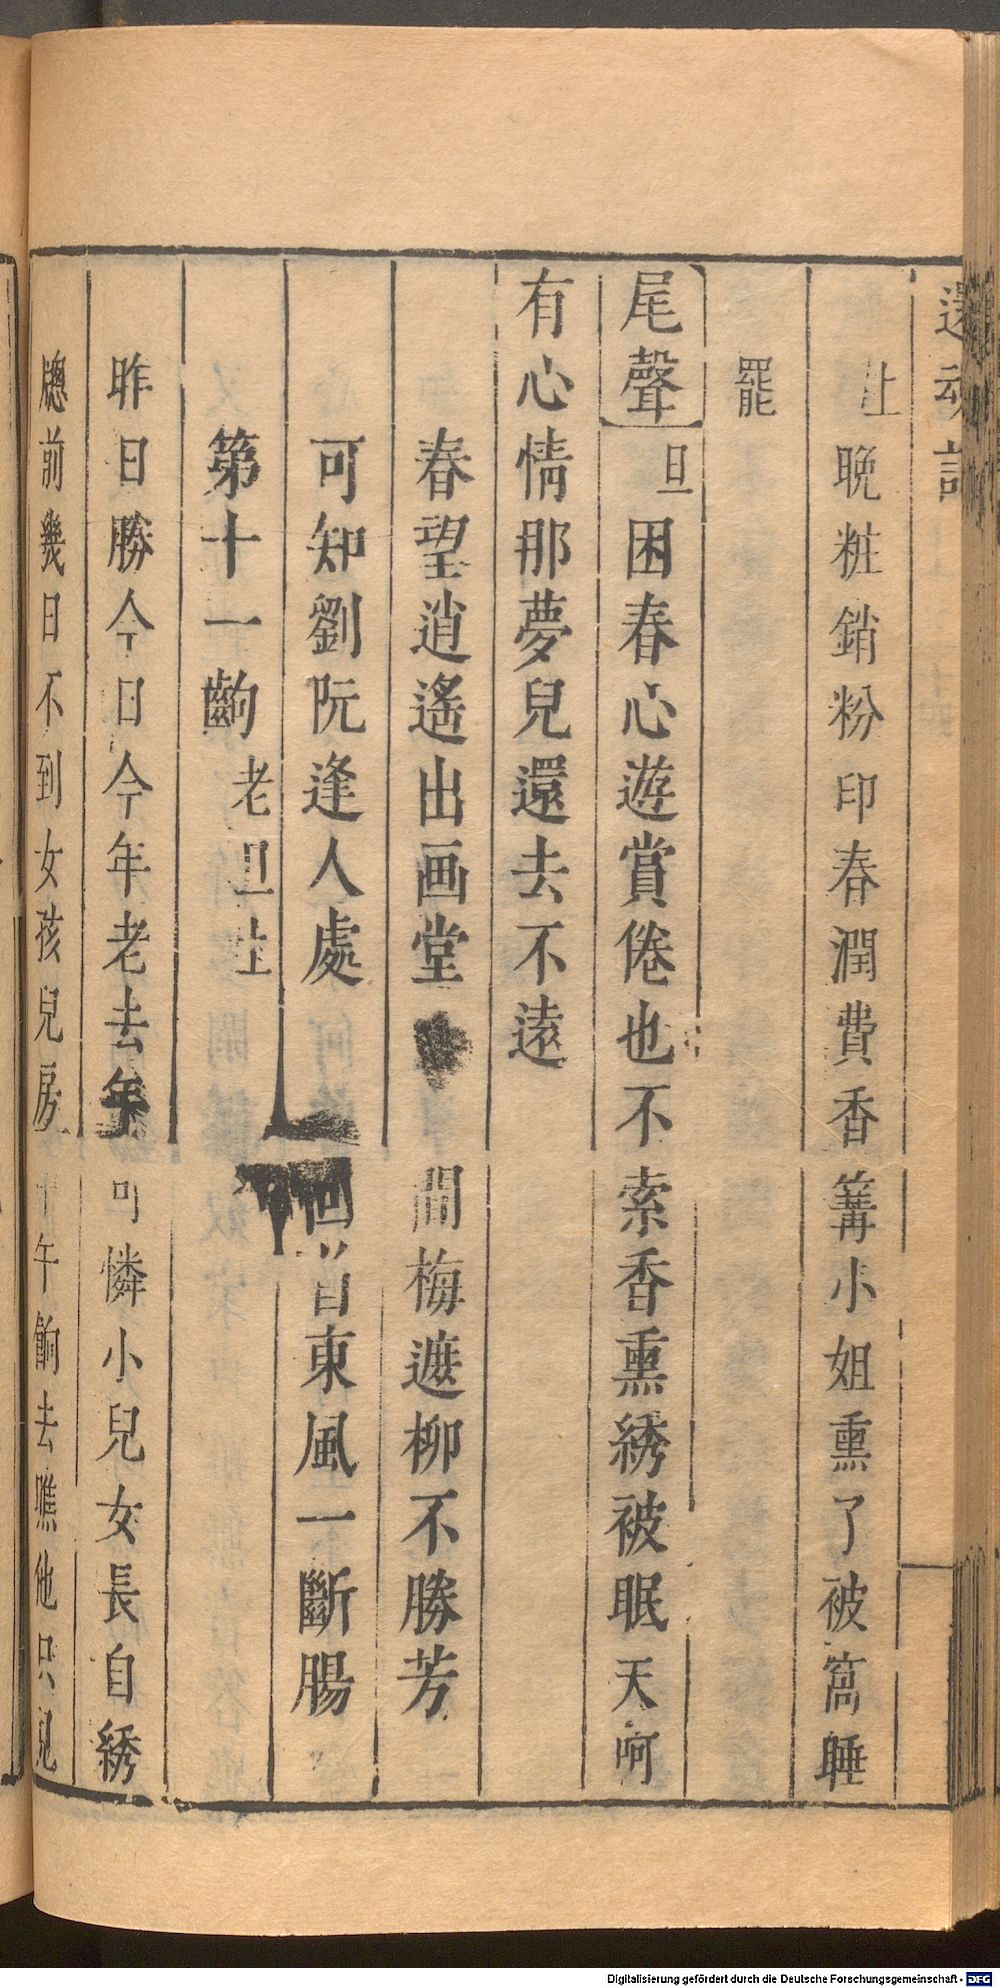 還魂記
上晚粧銷粉印春潤費香篝小姐熏了被窩睡
罷
尾聲旦困春心遊賞倦也不索香熏綉被眠天呵
有心情那夢兒還去不遠
春望逍遙出画堂 間梅遮柳不勝芳
可知劉阮逢人處 回首東風一斷腸
第十一齣老旦上
昨日勝今日今年老去年可憐小兒女長自綉
牕前幾日不到女孩兒房午餉去瞧他只見
Digitalisierung gefördert durch die Deutsche Forschungsgemeinschaft - DFG